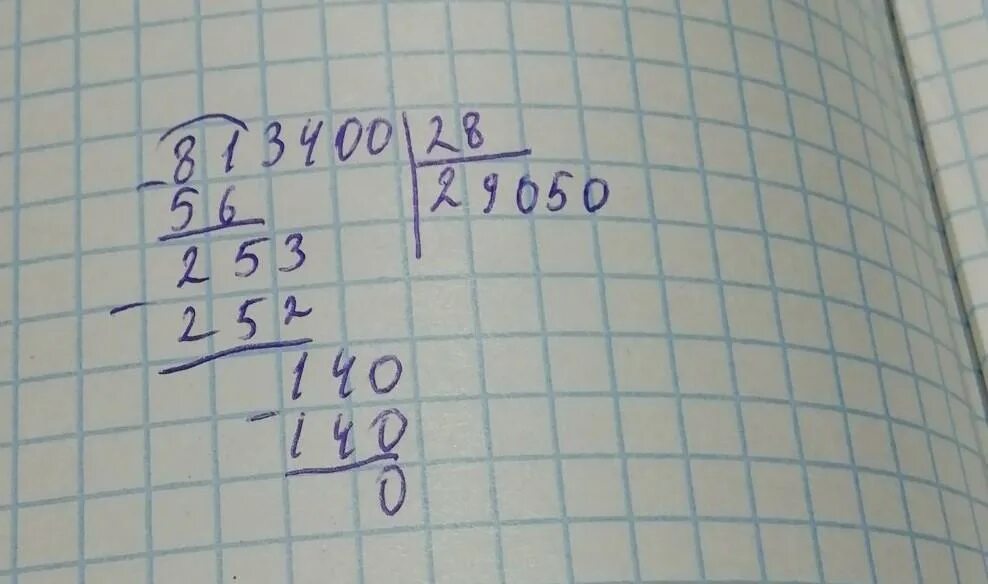 813400 28
- 56 29050
253
- 252
140
- 140
0